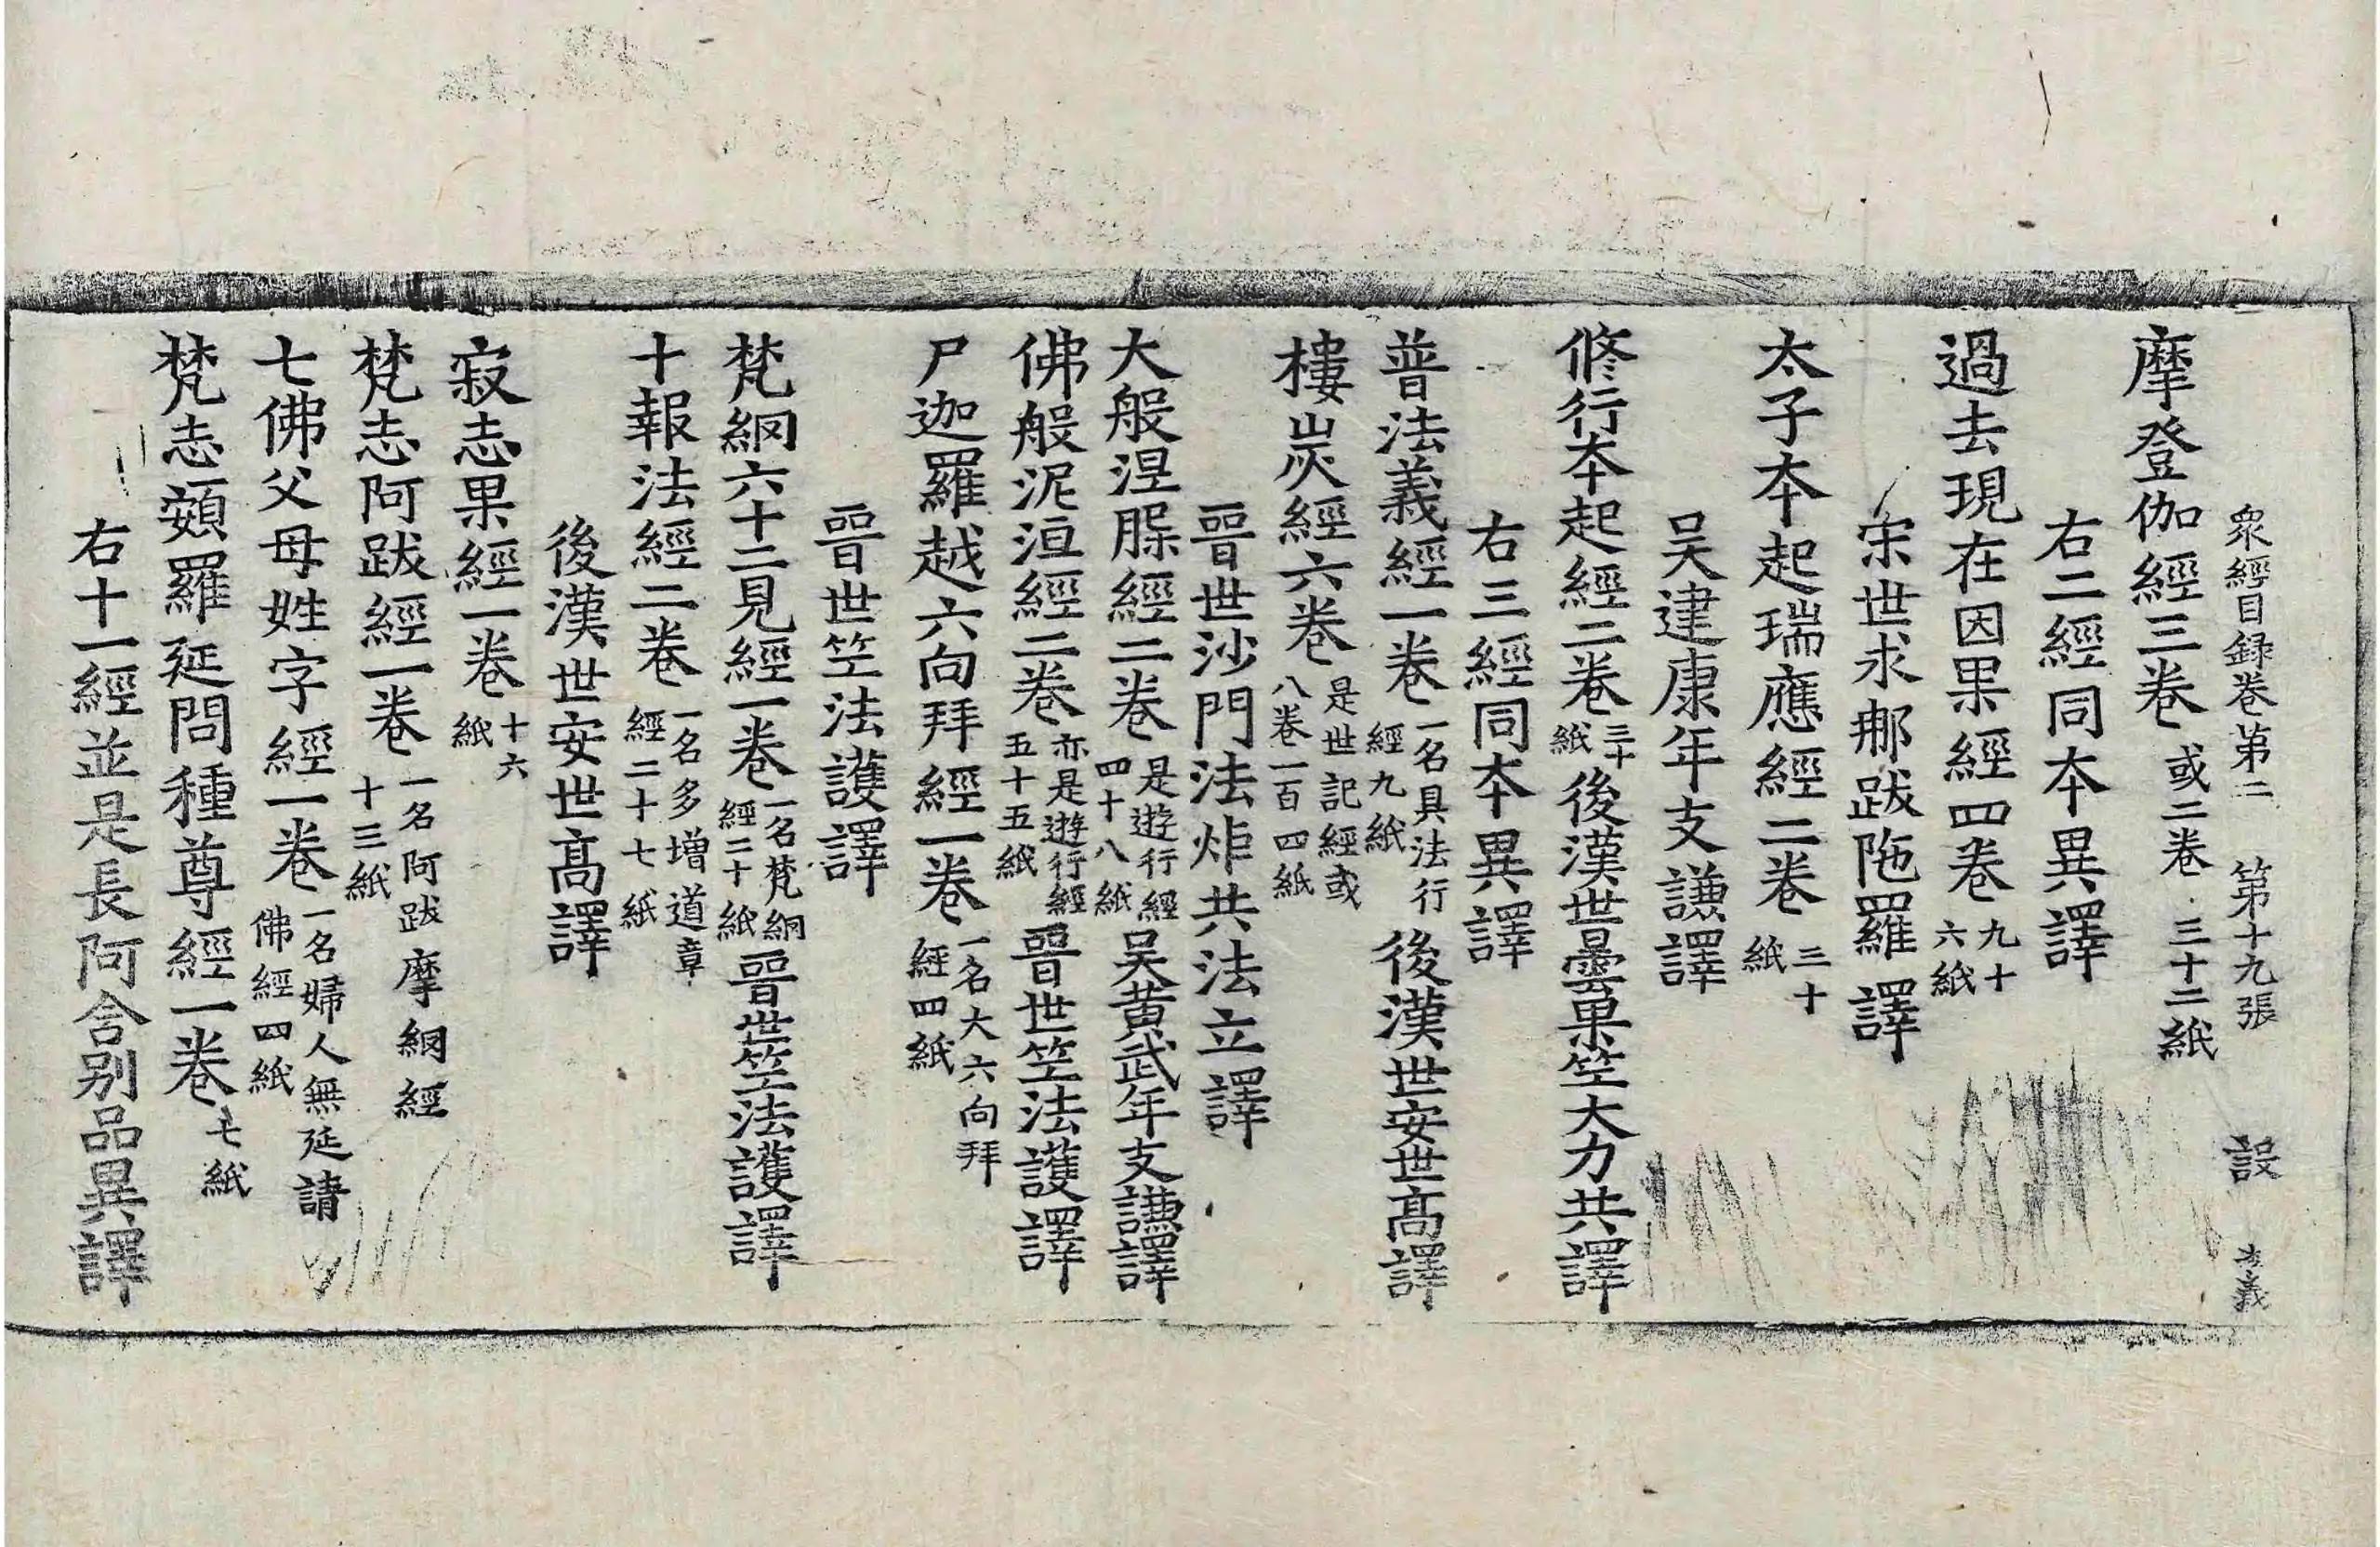 衆經目録卷第二　第十九張　設　李義
摩登伽經三卷 或二卷 三十二紙
右二經同本異譯
過去現在因果經四卷 九十六紙
宋世求那跋陁羅譯
太子本起瑞應經二卷 三十紙
吳建康年支謙譯
修行本起經二卷 三十紙 後漢世曇果竺大力共譯
右三經同本異譯
普法義經一卷 一名具法行經九紙 後漢世安世髙譯
樓炭經六卷 是世記經或八卷一百四紙
晉世沙門法炬共法立譯
大般涅槃經二卷 是遊行經四十八紙 吴黄武年支謙譯
佛般泥洹經二卷 亦是遊行經五十五紙 晉世竺法護譯
尸迦羅越六向拜經一卷 一名大六向拜經四紙
晉世竺法護譯
梵網六十二見經一卷 一名梵網經二十紙 晉世竺法護譯
十報法經二卷 一名多增道章經二十七紙
後漢世安世髙譯
寂志果經一卷 十六紙
梵志阿跋經一卷 一名阿跋摩網經十三紙
七佛父母姓字經一卷 一名婦人無延請佛經四紙
梵志頞羅延問種尊經一卷 七紙
右十一經並是長阿含别品異譯